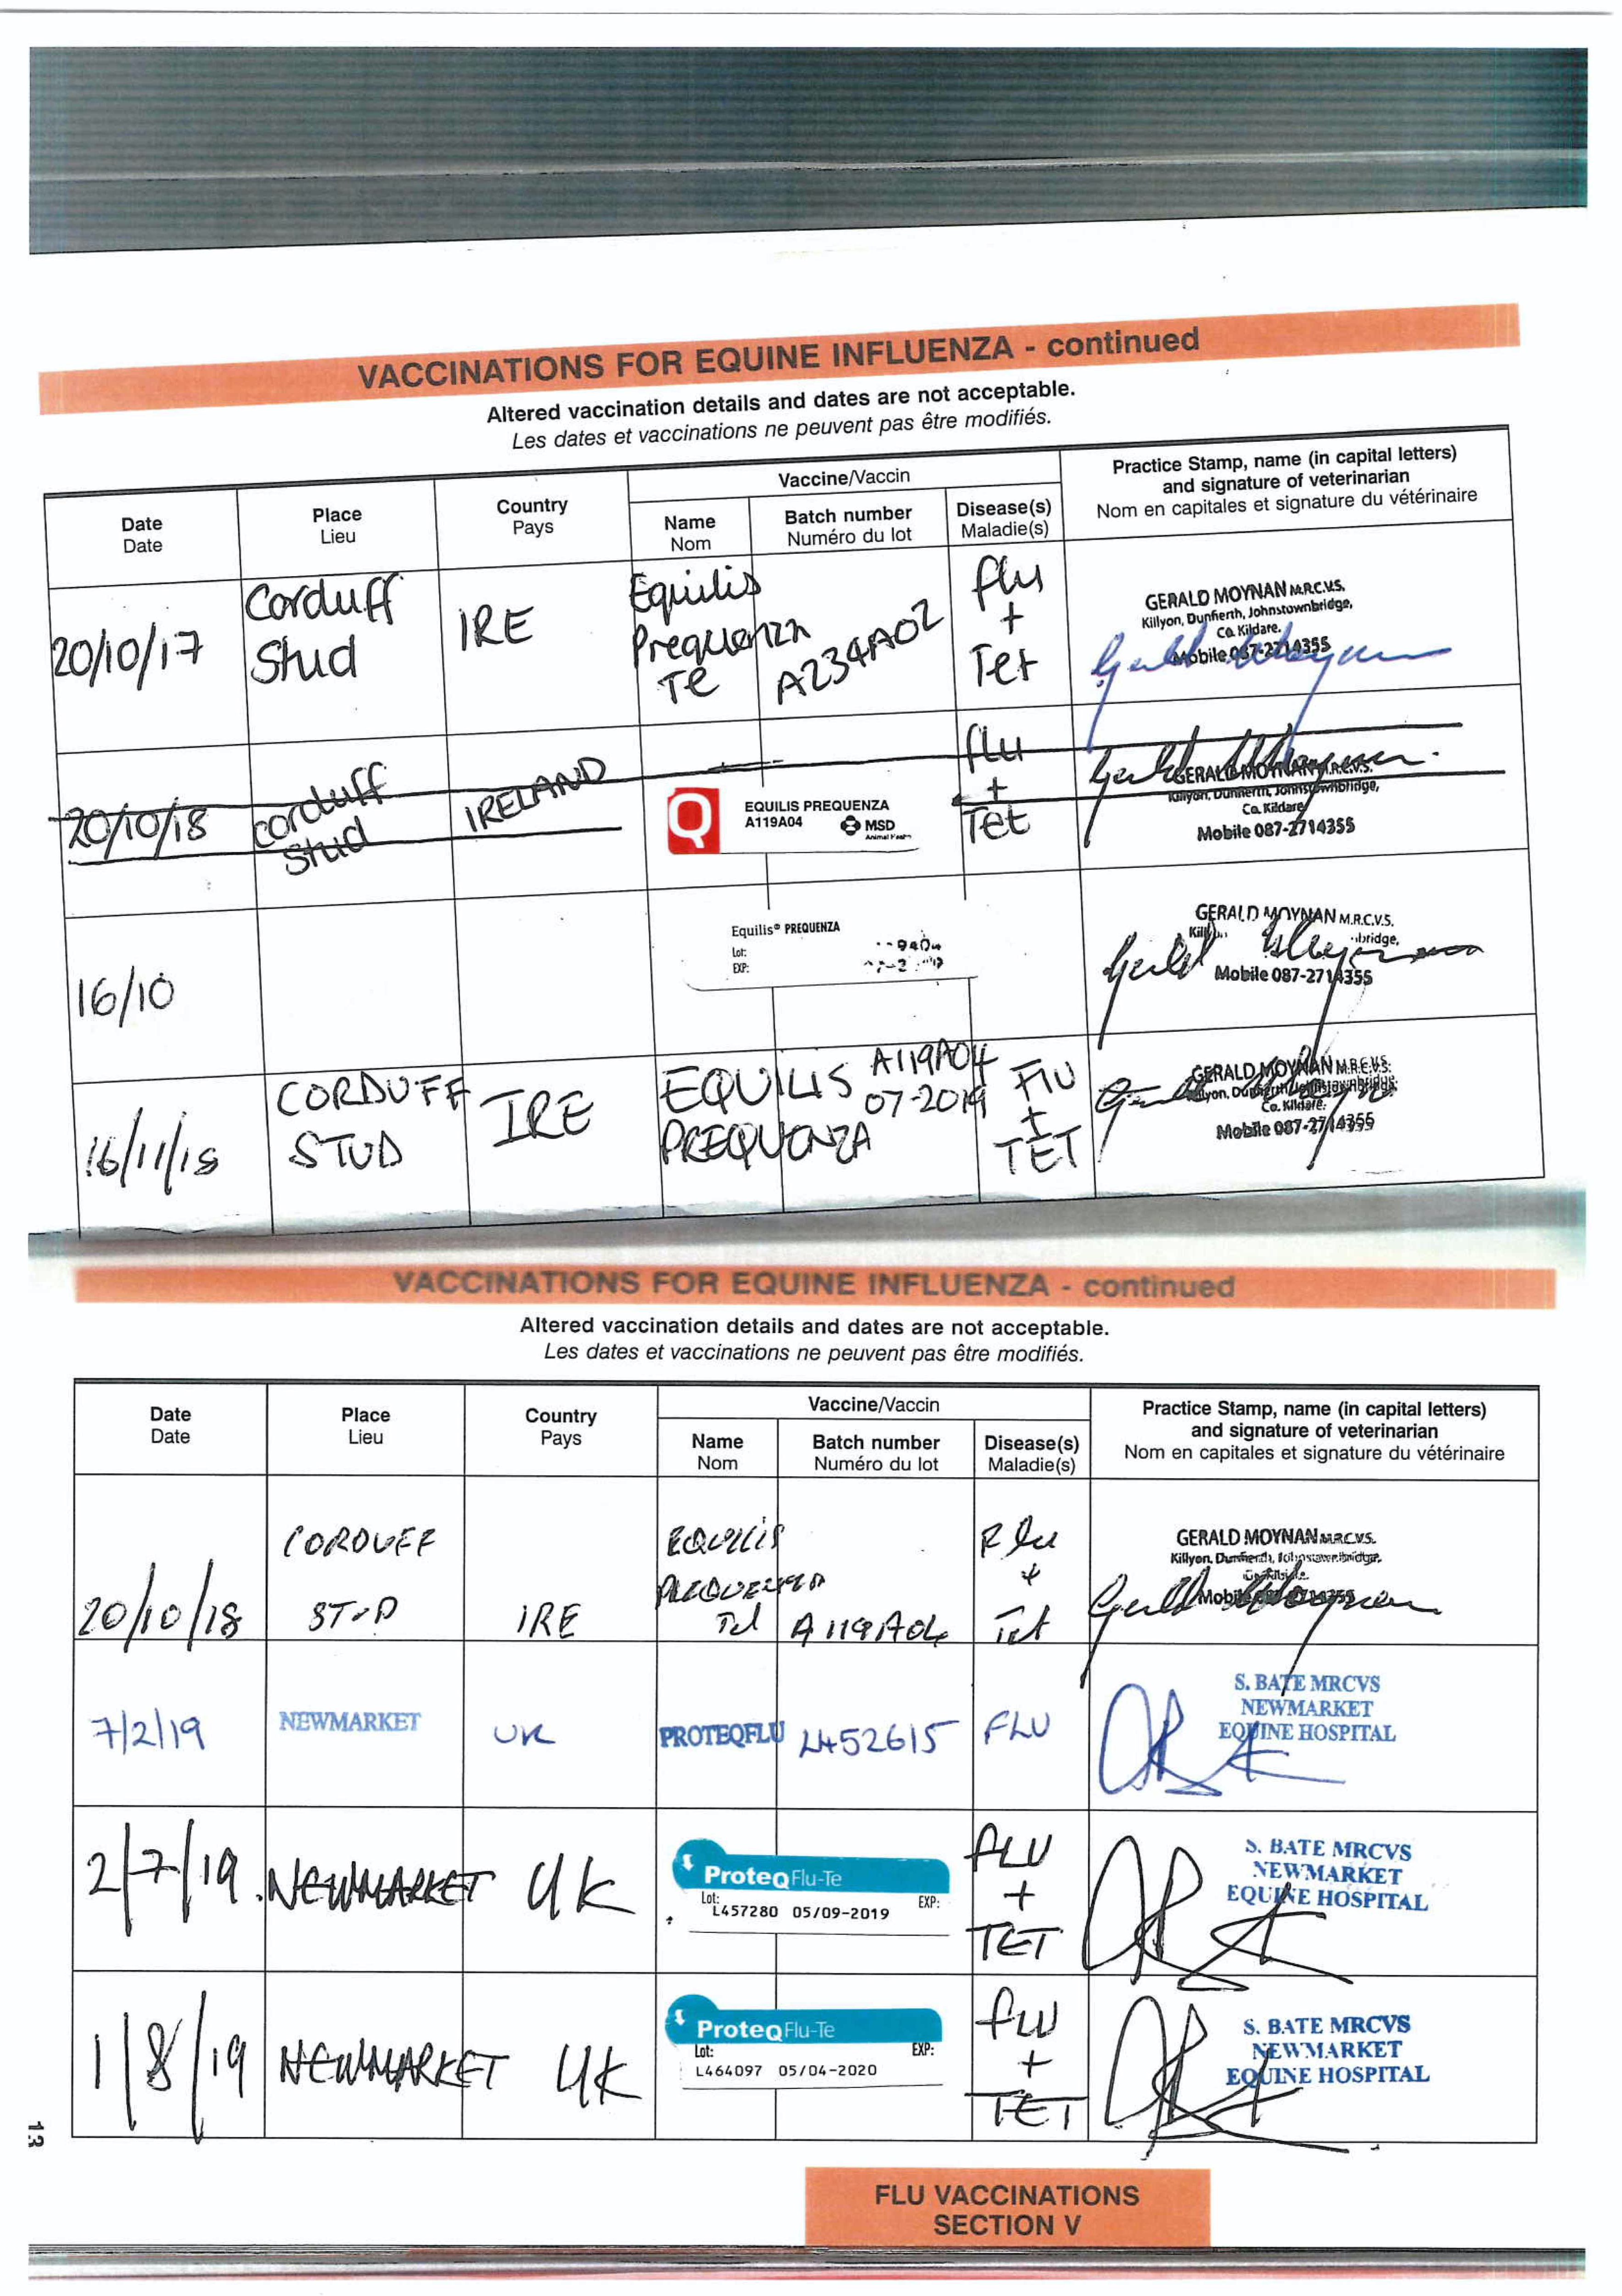 VACCINATIONS FOR EQUINE INFLUENZA - continued
Altered vaccination details and dates are not acceptable.
Les dates et vaccinations ne peuvent pas être modifiés.
Date
Date
Place
Lieu
Country
Pays
Vaccine/Vaccin
Name
Nom
Batch number
Numéro du lot
Disease(s)
Maladie(s)
Practice Stamp, name (in capital letters)
and signature of veterinarian
Nom en capitales et signature du vétérinaire
20/10/17
Corduff
Stud
IRE
Equilis
Prequenza
Te
A234A02
flu
+
Tet
GERALD MOYNAN M.R.C.V.S.
Killyon, Dunfierth, Johnstownbridge,
Co. Kildare.
Mobile 087-2714355
20/10/18
corduff
stud
IRELAND
Q
EQUILIS PREQUENZA
A119A04
MSD
Animal Health
flu
+
Tet
GERALD MOYNAN M.R.C.V.S.
Killyon, Dunfierth, Johnstownbridge,
Co. Kildare
Mobile 087-2714355
16/10
Equilis® PREQUENZA
Lot:
EXP:
GERALD MOYNAN M.R.C.V.S.
Mobile 087-2714355
16/11/18
CORDUFF
STUD
IRE
EQUILIS
PREQUENZA
A119A04
07-2019
Flu
+
TET
GERALD MOYNAN M.R.C.V.S.
Killyon, Dunfierth, Johnstownbridge,
Co. Kildare.
Mobile 087-2714355
VACCINATIONS FOR EQUINE INFLUENZA - continued
Altered vaccination details and dates are not acceptable.
Les dates et vaccinations ne peuvent pas être modifiés.
Date
Date
Place
Lieu
Country
Pays
Vaccine/Vaccin
Name
Nom
Batch number
Numéro du lot
Disease(s)
Maladie(s)
Practice Stamp, name (in capital letters)
and signature of veterinarian
Nom en capitales et signature du vétérinaire
20/10/18
CORDUFF
STUD
IRE
EQUILIS
PREQUENZA
Tet
A119A04
Flu
+
Tet
GERALD MOYNAN M.R.C.V.S.
Killyon, Dunfierth, Johnstownbridge,
7/2/19
NEWMARKET
UK
PROTEQFLU
L452615
FLU
S. BATE MRCVS
NEWMARKET
EQUINE HOSPITAL
2/7/19.
NEWMARKET
UK
ProteqFlu-Te
Lot:
EXP:
L457280 05/09-2019
FLU
+
TET
S. BATE MRCVS
NEWMARKET
EQUINE HOSPITAL
1/8/19
NEWMARKET
UK
ProteqFlu-Te
Lot:
EXP:
L464097 05/04-2020
flu
+
TET
S. BATE MRCVS
NEWMARKET
EQUINE HOSPITAL
13
FLU VACCINATIONS
SECTION V